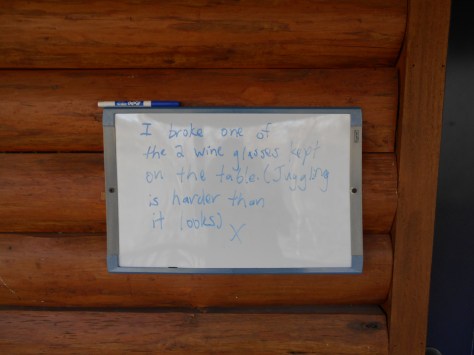 I broke one of
the 2 wine glasses kept
on the table. (Juggling
is harder than
it looks)
X